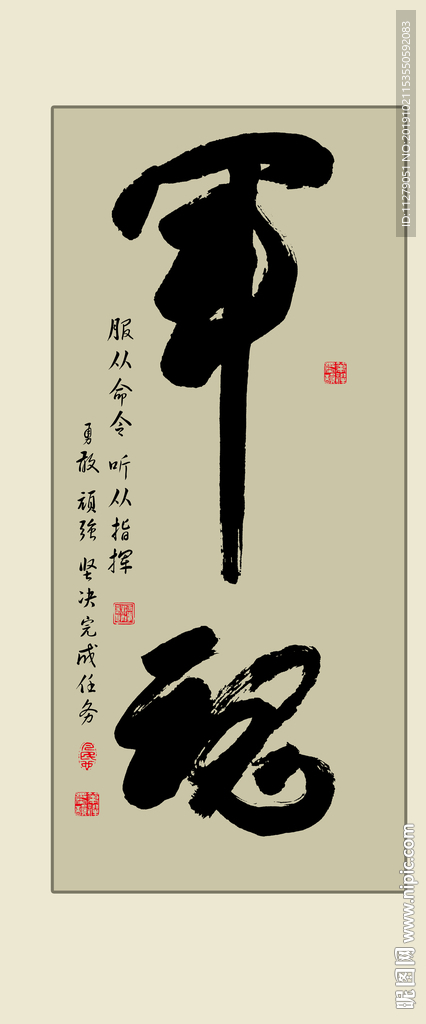 军魂
服从命令 听从指挥
勇敢 顽强 坚决完成任务
ID:11279051 NO:20191021153550592083
昵图网 www.nipic.com